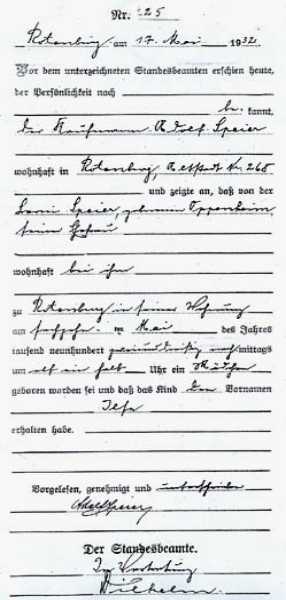 Nr. 25
Rotenburg am 17. Mai 1932
Vor dem unterzeichneten Standesbeamten erschien heute,
der Persönlichkeit nach
be kannt,
der Kaufmann Adolf Speier
wohnhaft in Rotenburg, Altstadt Nr. 268
und zeigte an, daß von der
Speier, geborenen Oppenheim,
seiner Ehefrau
wohnhaft bei ihm
zu Rotenburg in seiner Wohnung
am sechzehn ten Mai des Jahres
tausend neunhundert zweiunddreißig nachmittags
um elf ein halb Uhr ein Mädchen
geboren worden sei und daß das Kind den Vornamen
Ilse
erhalten habe.
Vorgelesen, genehmigt und unterschrieben
Adolf Speier
Der Standesbeamte.
In Vertretung
Wilhelm.